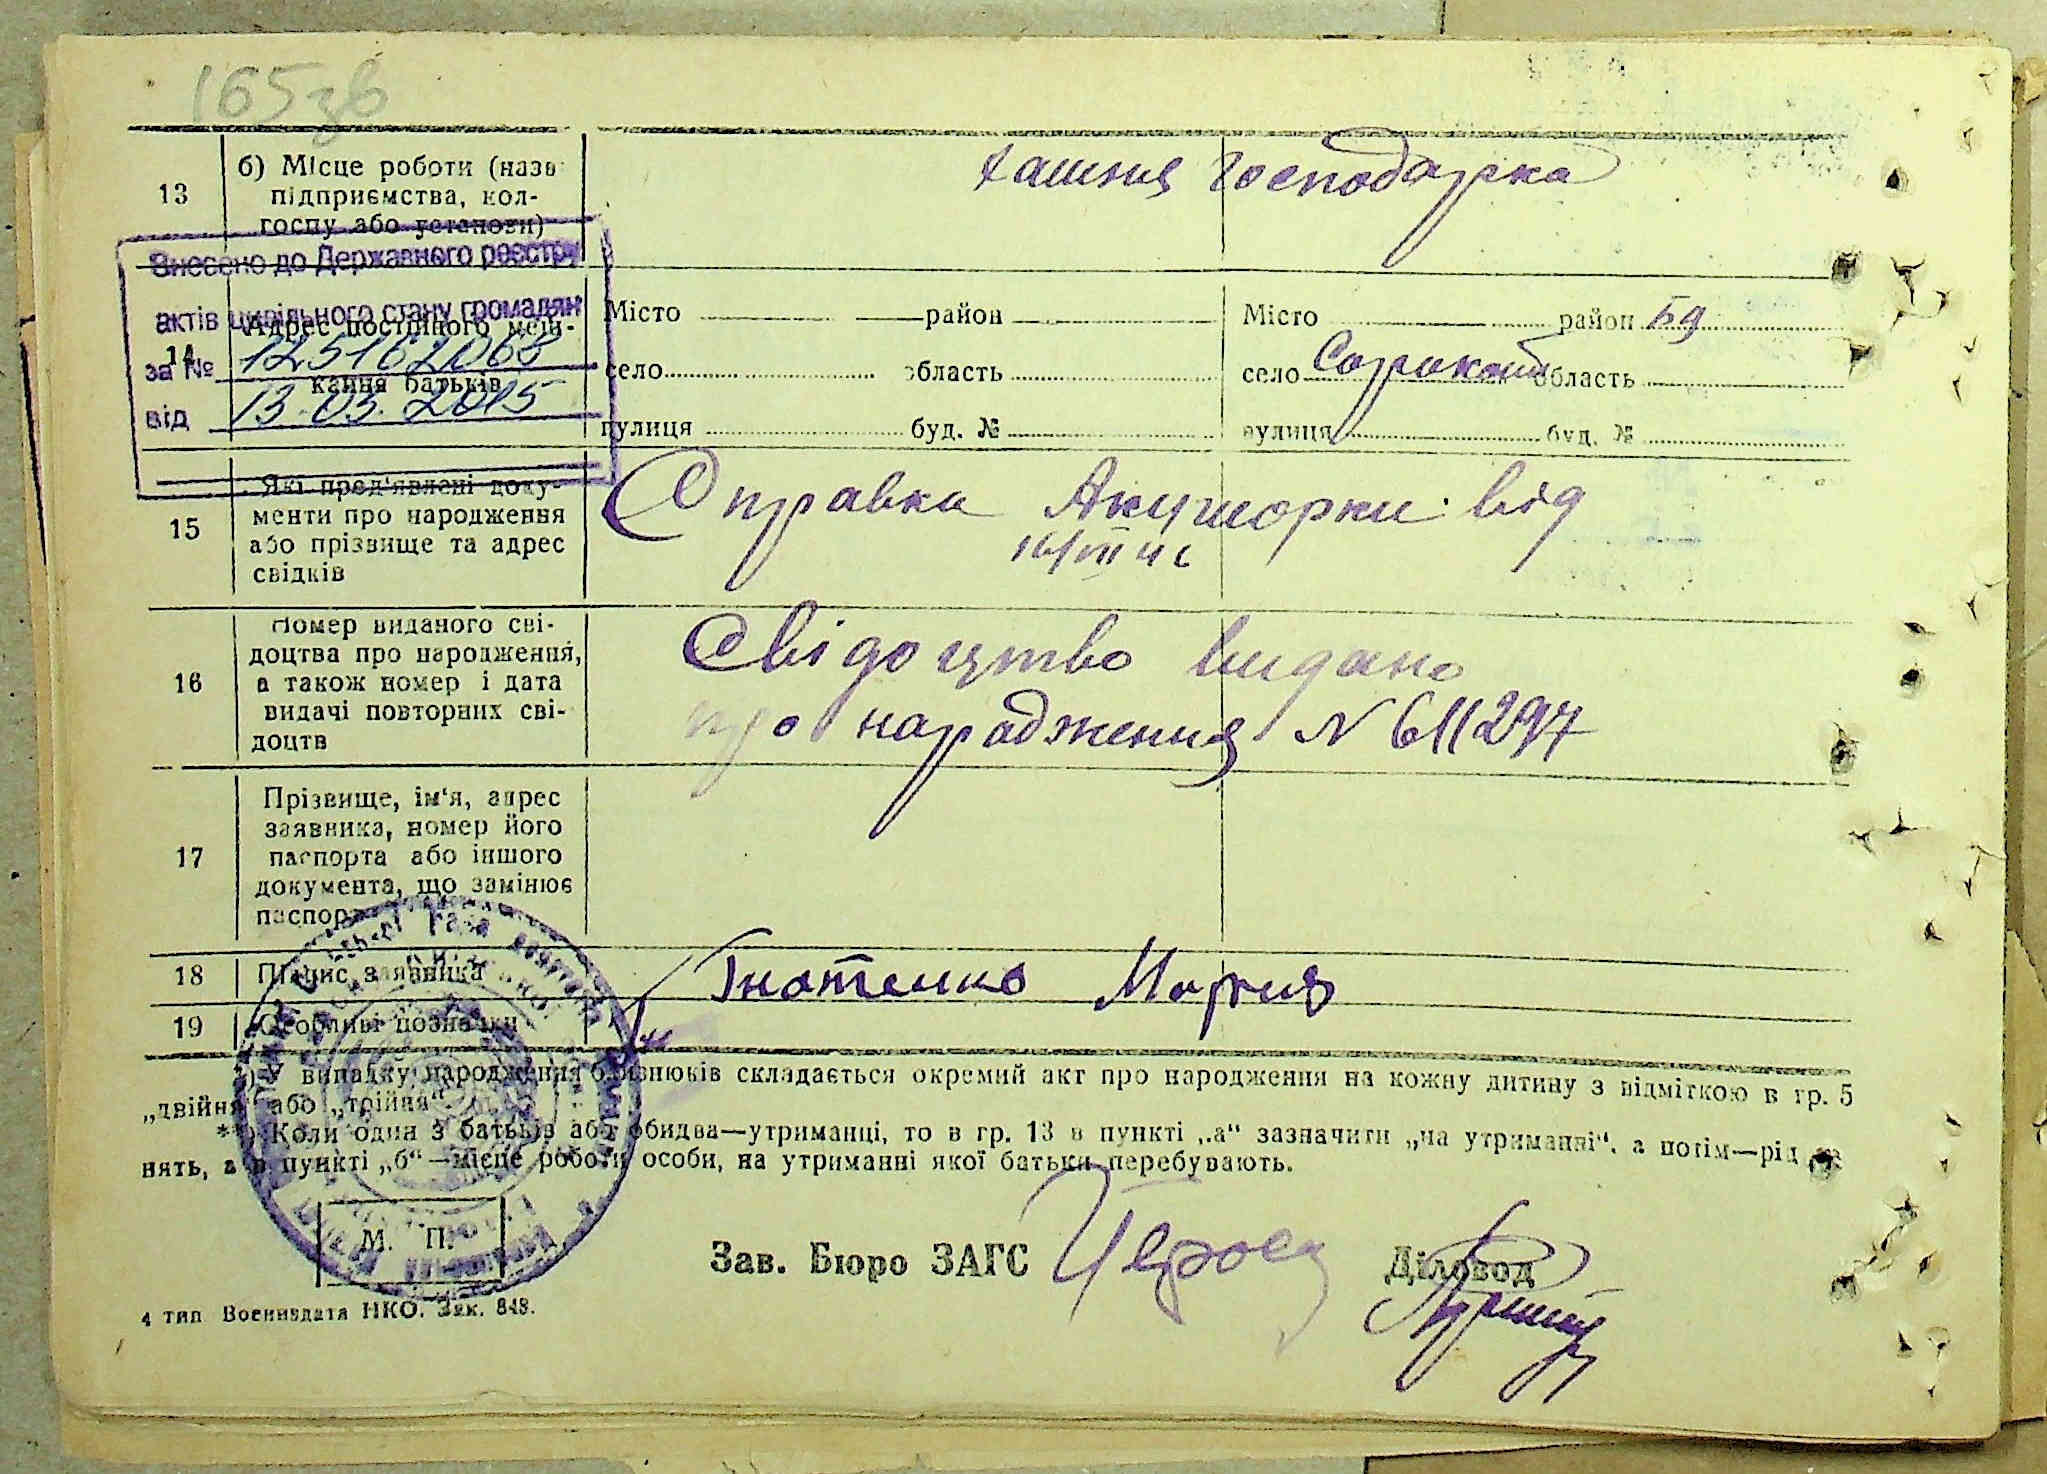 165зв
13
б) Місце роботи (назв
підприємства, кол-
госпу або установи)
хатня господарка
Внесено до Державного реєстру
актів цивільного стану громадян
за №
від 13.03.2015
14
Адрес постійного меш-
кання батьків
Місто район
село область
вулиця буд. №
Місто район
село область
вулиця буд. №
15
Які пред'явлені доку-
менти про народження
або прізвище та адрес
свідків
Справка Акушорки від
16
Номер виданого сві-
доцтва про народження,
а також номер і дата
видачі повторних сві-
доцтв
Свідоцтво видано
про народження N 611297
17
Прізвище, ім'я, адрес
заявника, номер його
паспорта або іншого
документа, що замінює
паспорт
18
Підпис заявника
Гнотенко Мария
19
Особливі позначки
*) У випадку народження близнюків складається окремий акт про народження на кожну дитину з відміткою в гр. 5
„двійня“ або „трійня“.
**) Коли один з батьків або обидва—утриманці, то в гр. 13 в пункті „а“ зазначити „на утриманні“, а потім—рід за
нять, а в пункті „б“—місце роботи особи, на утриманні якої батьки перебувають.
М. П.
Зав. Бюро ЗАГС
Діловод
4 тип Воениздата НКО. Зак. 848.